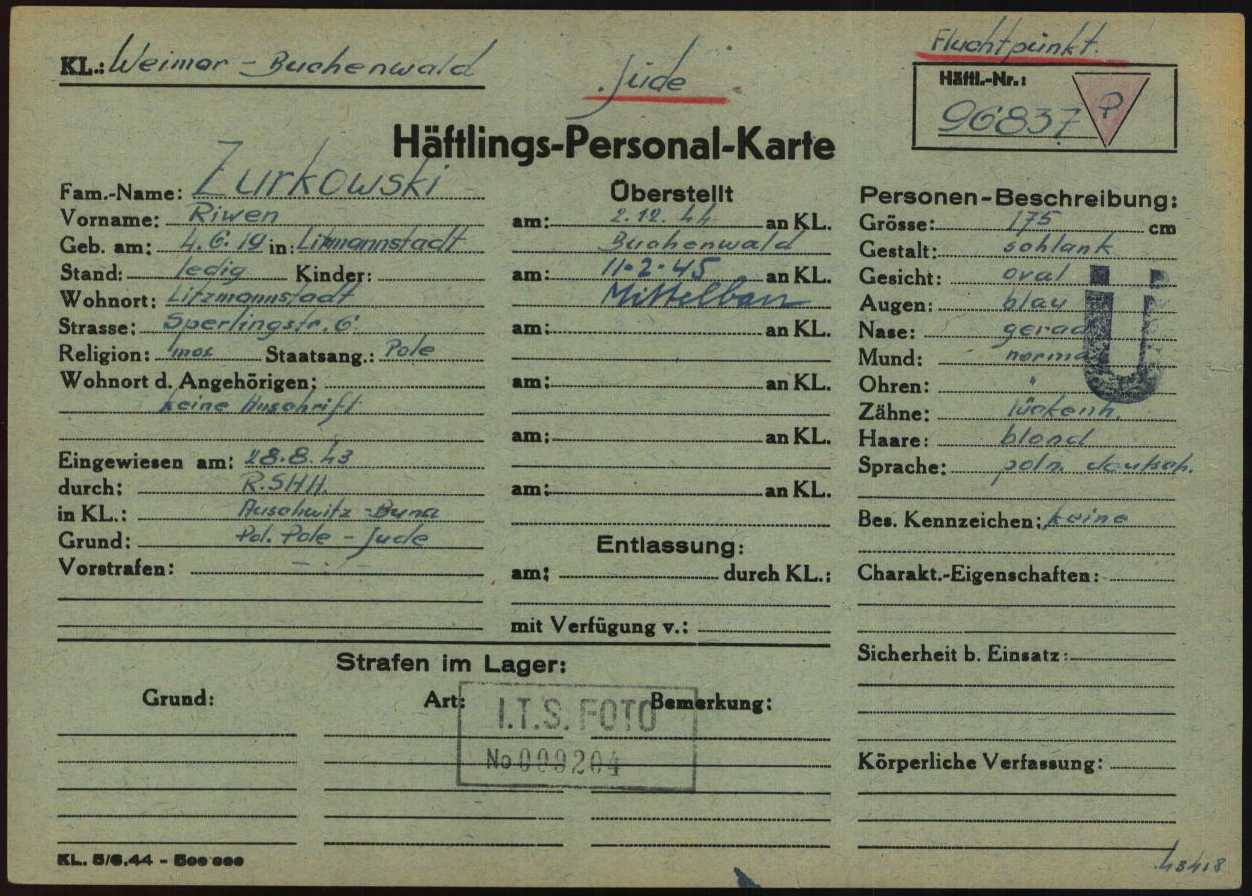 KL.: Weimar - Buchenwald
Jude
Fluchtpunkt.
Häftl.-Nr.:
96837 P
Häftlings-Personal-Karte
Fam.-Name: Zurkowski
Vorname: Riwen
Geb. am: 4.6.19 in: Litzmannstadt
Stand: ledig Kinder:
Wohnort: Litzmannstadt
Strasse: Sperlingstr. 6
Religion: mos Staatsang.: Pole
Wohnort d. Angehörigen:
keine Anschrift
Eingewiesen am: 28.8.43
durch: R.SHH.
in KL.: Auschwitz-Buna
Grund: Pol. Pole - Jude
Vorstrafen: - . -
Überstellt
am: 2.12.44 an KL.
Buchenwald
am: 11.2.45 an KL.
Mittelbau
am: an KL.
am: an KL.
am: an KL.
am: an KL.
Entlassung:
am: durch KL.:
mit Verfügung v.:
Personen-Beschreibung:
Grösse: 175 cm
Gestalt: schlank
Gesicht: oval
Augen: blau
Nase: gerad
Mund: normal
Ohren: "
Zähne: lückenh.
Haare: blond
Sprache: poln. deutsch.
Ü
Bes. Kennzeichen: keine
Charakt.-Eigenschaften:
Sicherheit b. Einsatz:
Körperliche Verfassung:
Strafen im Lager:
Grund: Art: Bemerkung:
I.T.S. FOTO
No 009204
KL. 5/6.44 - 500 000
43418